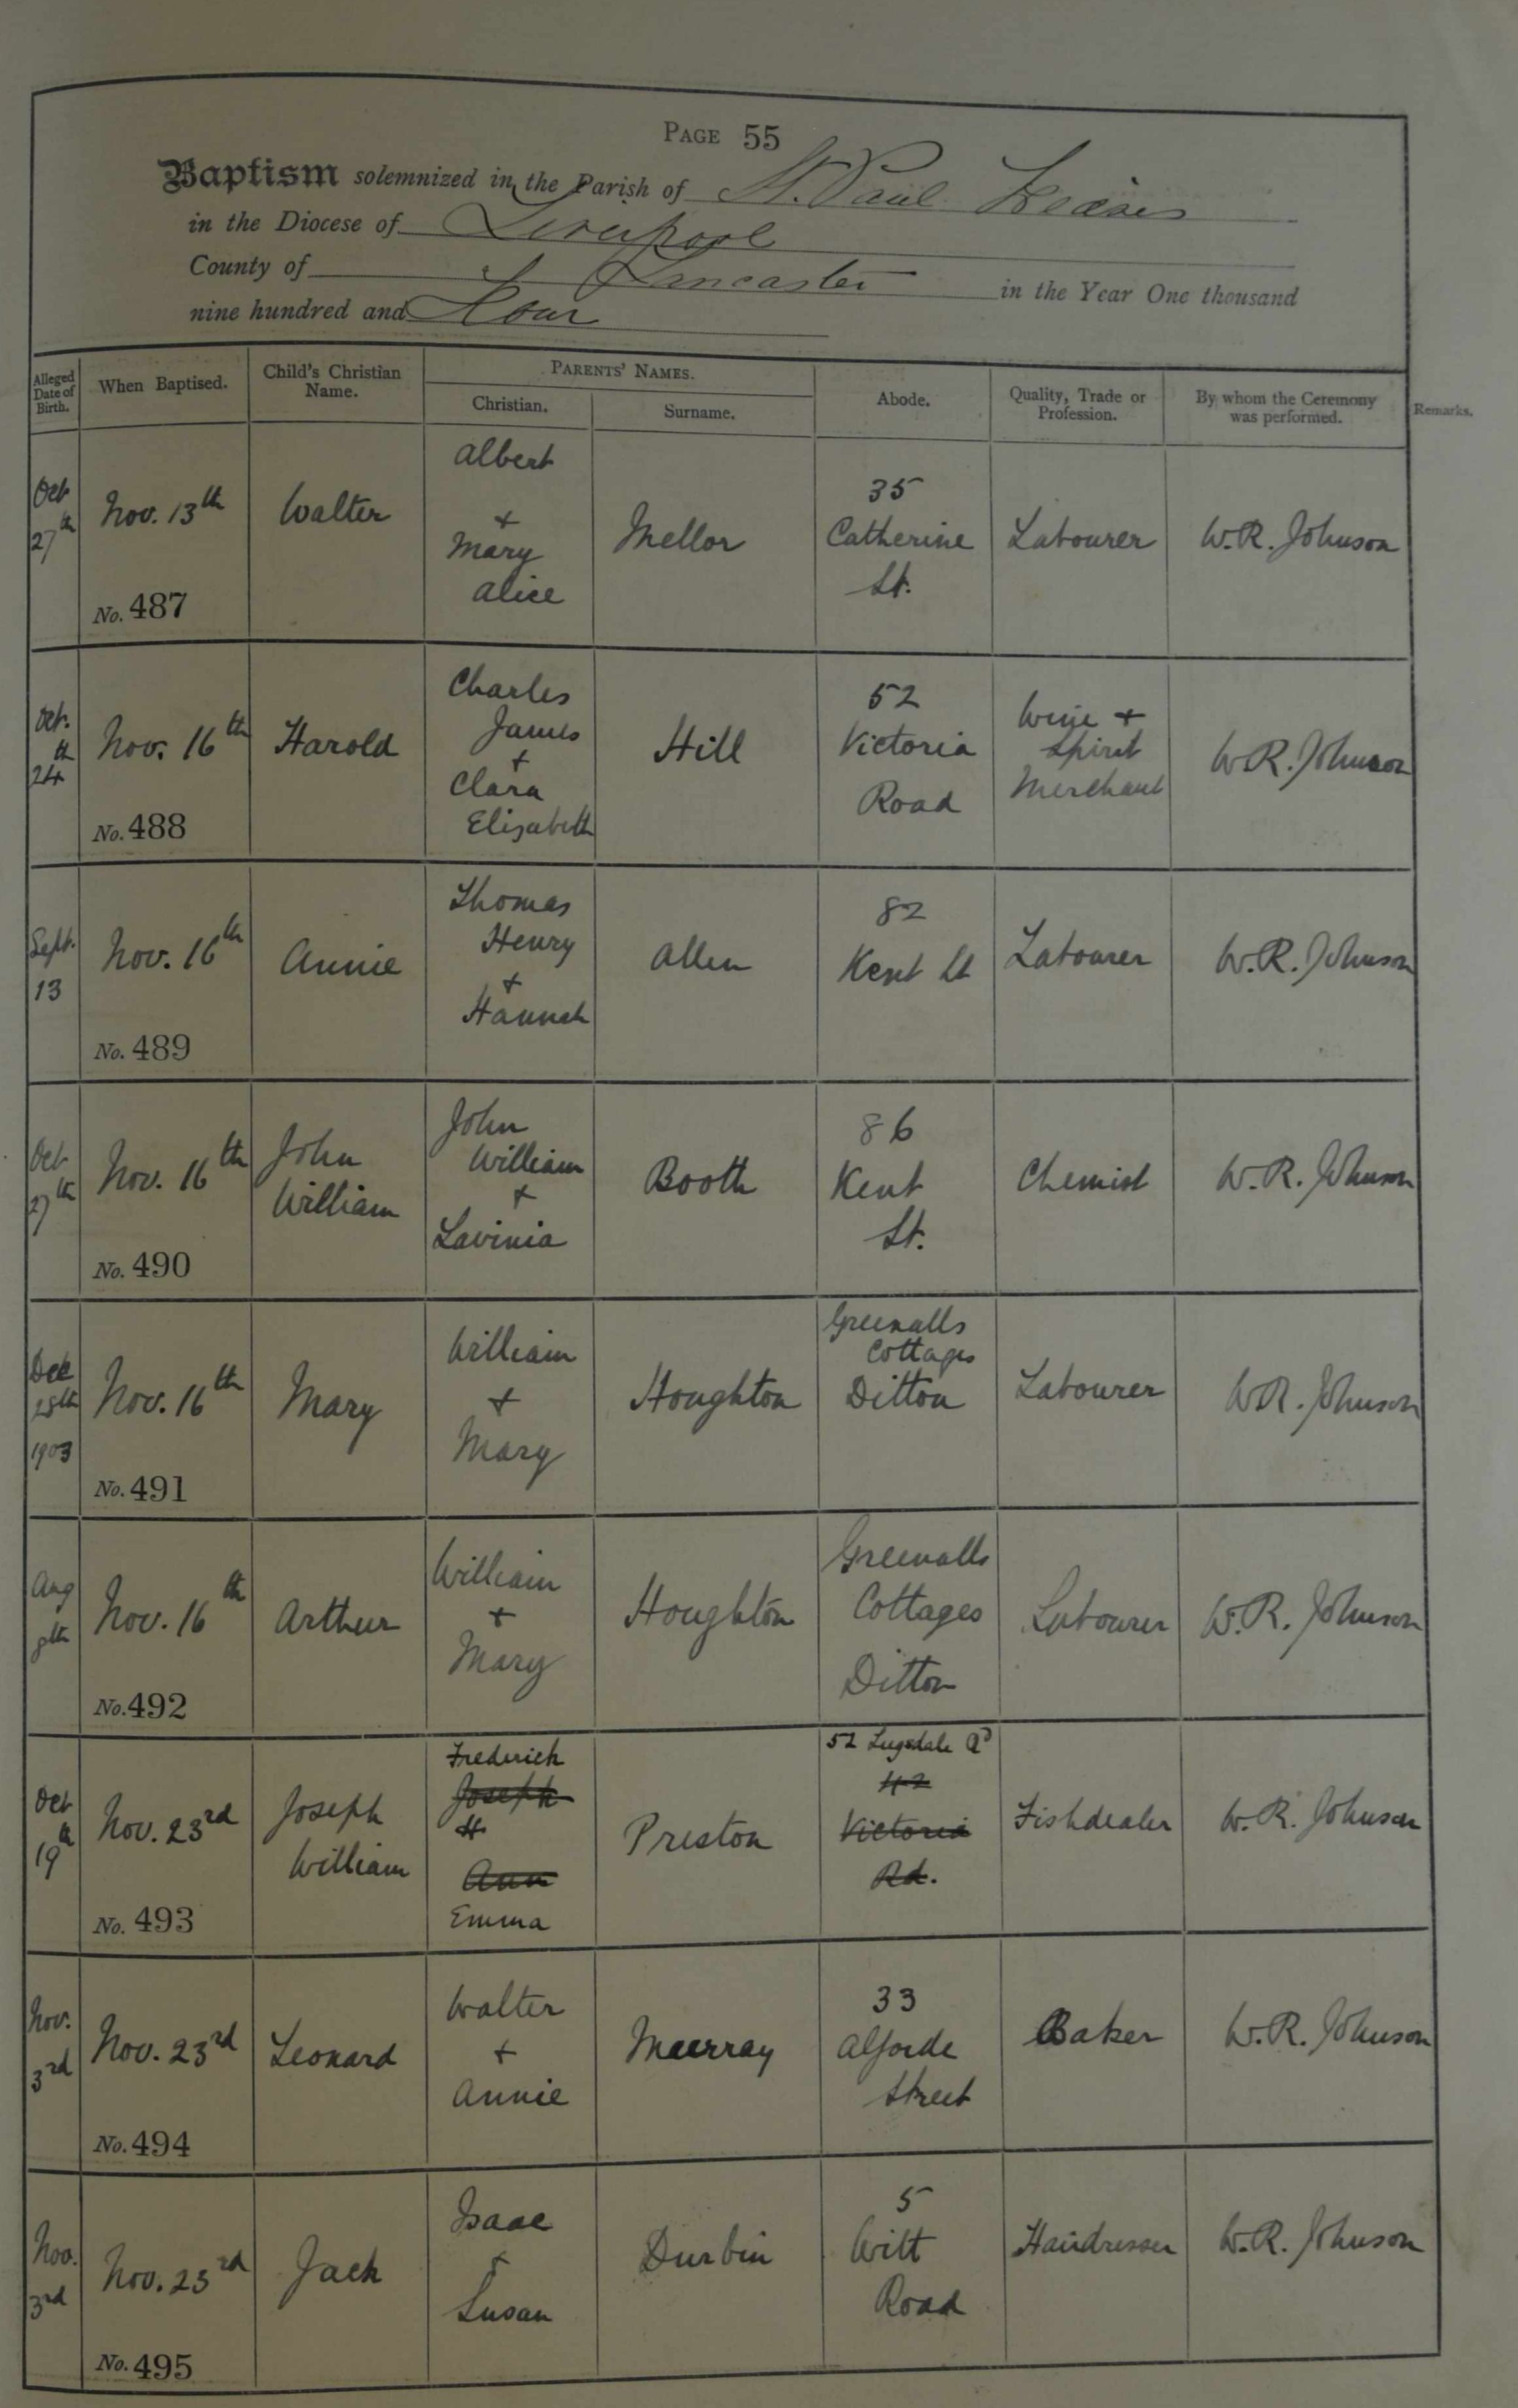 PAGE 55
Baptism solemnized in the Parish of St. Paul Widnes
in the Diocese of Liverpool
County of Lancaster in the Year One thousand
nine hundred and Four
Alleged Date of Birth.
When Baptised.
Child's Christian Name.
PARENTS' NAMES.
Christian.
Surname.
Abode.
Quality, Trade or Profession.
By whom the Ceremony was performed.
Remarks.
Oct 27th
Nov. 13th
No. 487
Walter
Albert
+
Mary
Alice
Mellor
35
Catherine
St.
Labourer
W.R. Johnson
Oct. 24th
Nov. 16th
No. 488
Harold
Charles
James
+
Clara
Elizabeth
Hill
52
Victoria
Road
Wine +
Spirit
Merchant
W.R. Johnson
Sept. 13
Nov. 16th
No. 489
Annie
Thomas
Henry
+
Hannah
Allen
82
Kent St
Labourer
W.R. Johnson
Oct 27th
Nov. 16th
No. 490
John
William
John
William
+
Lavinia
Booth
86
Kent
St.
Chemist
W.R. Johnson
Dec 28th 1903
Nov. 16th
No. 491
Mary
William
+
Mary
Houghton
Greenalls
Cottages
Ditton
Labourer
W.R. Johnson
Aug 8th
Nov. 16th
No. 492
Arthur
William
+
Mary
Houghton
Greenalls
Cottages
Ditton
Labourer
W.R. Johnson
Oct 19th
Nov. 23rd
No. 493
Joseph
William
Frederick
Joseph
+
Ann
Emma
Preston
52 Lugsdale Rd
42
Victoria
Rd.
Fishdealer
W.R. Johnson
Nov. 3rd
Nov. 23rd
No. 494
Leonard
Walter
+
Annie
Murray
33
Alforde
Street
Baker
W.R. Johnson
Nov. 3rd
Nov. 23rd
No. 495
Jack
Isaac
+
Susan
Durbin
5
Witt
Road
Hairdresser
W.R. Johnson